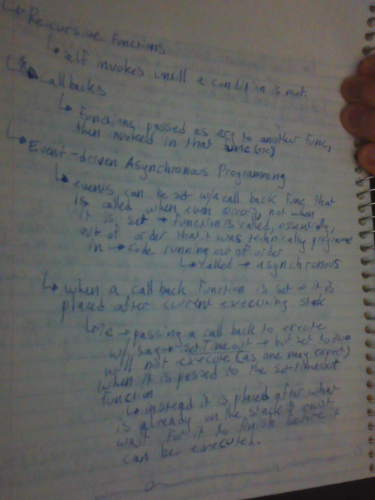 Recursive Functions
self invokes untill a condition is met.
Callbacks
Functions passed as arg to another func,
then invoked in that func
Event-driven Asynchronous Programming
events can be set w/a call back func that
is called when even occurs, not when
it is set → function is called, essentially,
out of order that it was technically programed
in → code running out of order
called → asynchronous
when a call back function is set → it is
placed after current executing stack
ie → passing a call back to execute
w/ say → setTimeout → but set to zero
will not execute (as one may expect)
when it is passed to the setTimeout
function
instead it is placed after what
is already on the stack & must
wait for it to finish before it
can be executed.